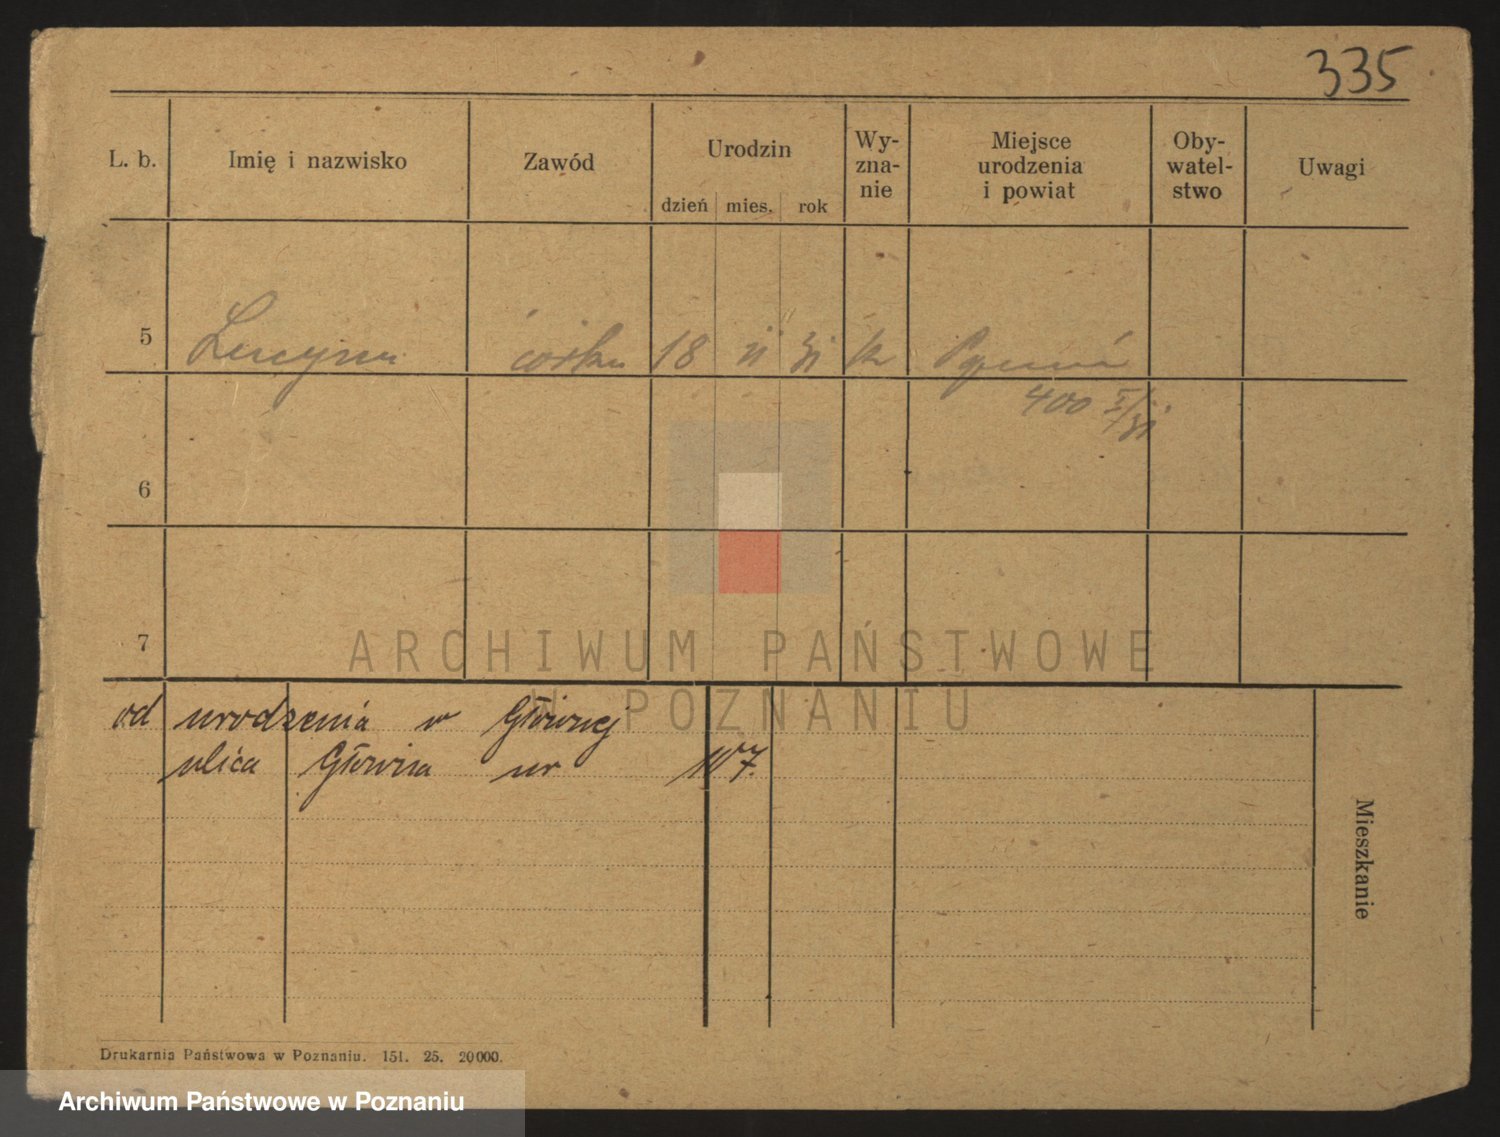 335
L. b. Imię i nazwisko Zawód Urodzin dzień mies. rok Wy-zna-nie Miejsce urodzenia i powiat Oby-watel-stwo Uwagi
5 Lucyna córka 18 k
400
6
7
ARCHIWUM PAŃSTWOWE
W POZNANIU
od urodzenia w Głównej
ulica Główna nr
Mieszkanie
Drukarnia Państwowa w Poznaniu. 151. 25. 20000.
Archiwum Państwowe w Poznaniu